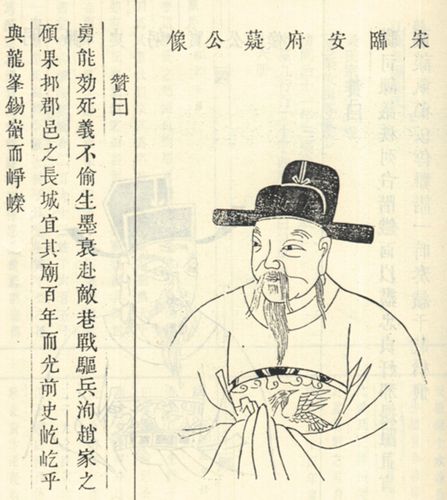 宋臨安府薿公像
贊曰
勇能効死義不偷生墨衰赴敵巷戰驅兵洵趙家之
碩果抑郡邑之長城宜其廟百年而光前史屹屹乎
典龍峯錫嶺而崢嶸